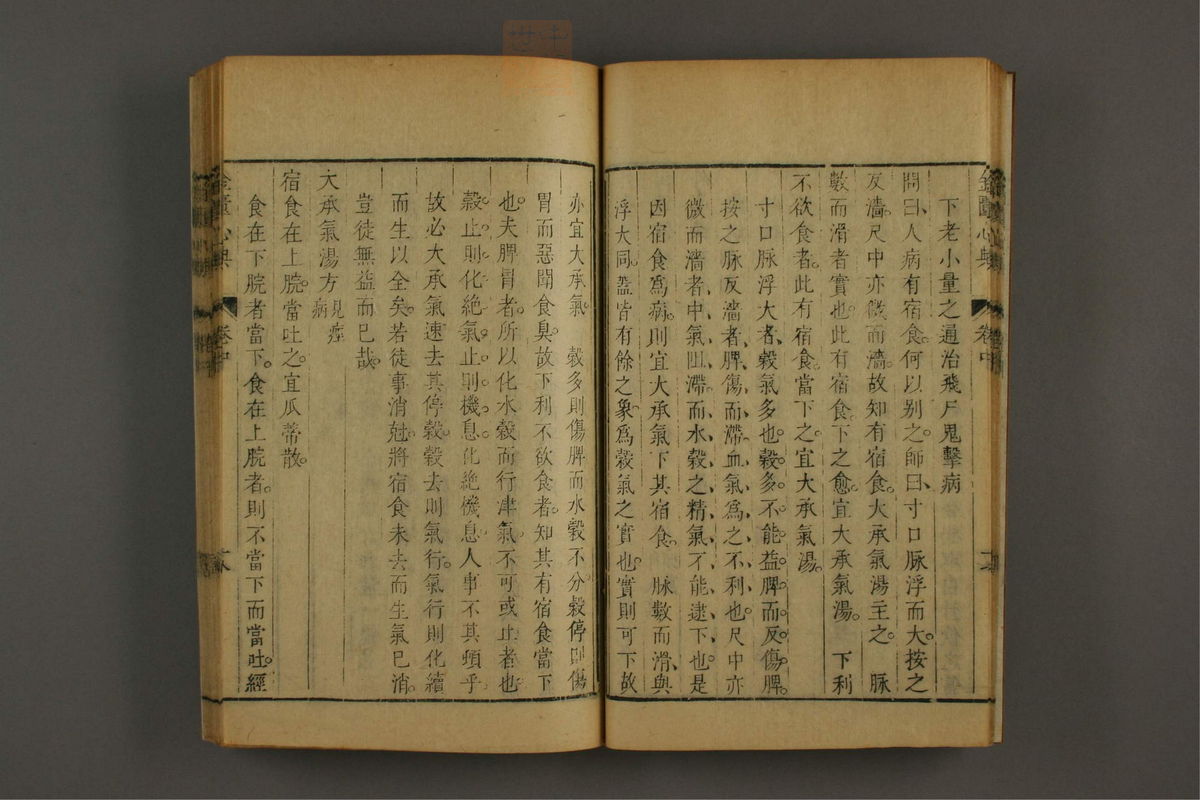 金匱心典
卷中
下老小量之通治飛尸鬼擊病
問曰人病有宿食何以別之師曰寸口脈浮而大按之
反濇尺中亦微而濇故知有宿食大承氣湯主之　脈
數而滑者實也此有宿食下之愈宜大承氣湯　下利
不欲食者此有宿食當下之宜大承氣湯
寸口脈浮大者穀氣多也穀多不能益脾而反傷脾
按之脈反濇者脾傷而滯血氣爲之不利也尺中亦
微而濇者中氣阻滯而水穀之精氣不能逮下也是
因宿食爲病則宜大承氣下其宿食　脈數而滑與
浮大同葢皆有餘之象爲穀氣之實也實則可下故
亦宜大承氣　穀多則傷脾而水穀不分穀停則傷
胃而惡聞食臭故下利不欲食者知其有宿食當下
也夫脾胃者所以化水穀而行津氣不可或止者也
穀止則化絶氣止則機息化絶機息人事不其頓乎
故必大承氣速去其停穀穀去則氣行氣行則化續
而生以全矣若徒事消尅將宿食未去而生氣已消
豈徒無益而已哉
大承氣湯方見痙病
宿食在上脘當吐之宜瓜蒂散
食在下脘者當下食在上脘者則不當下而當吐經
金匱心典
卷中